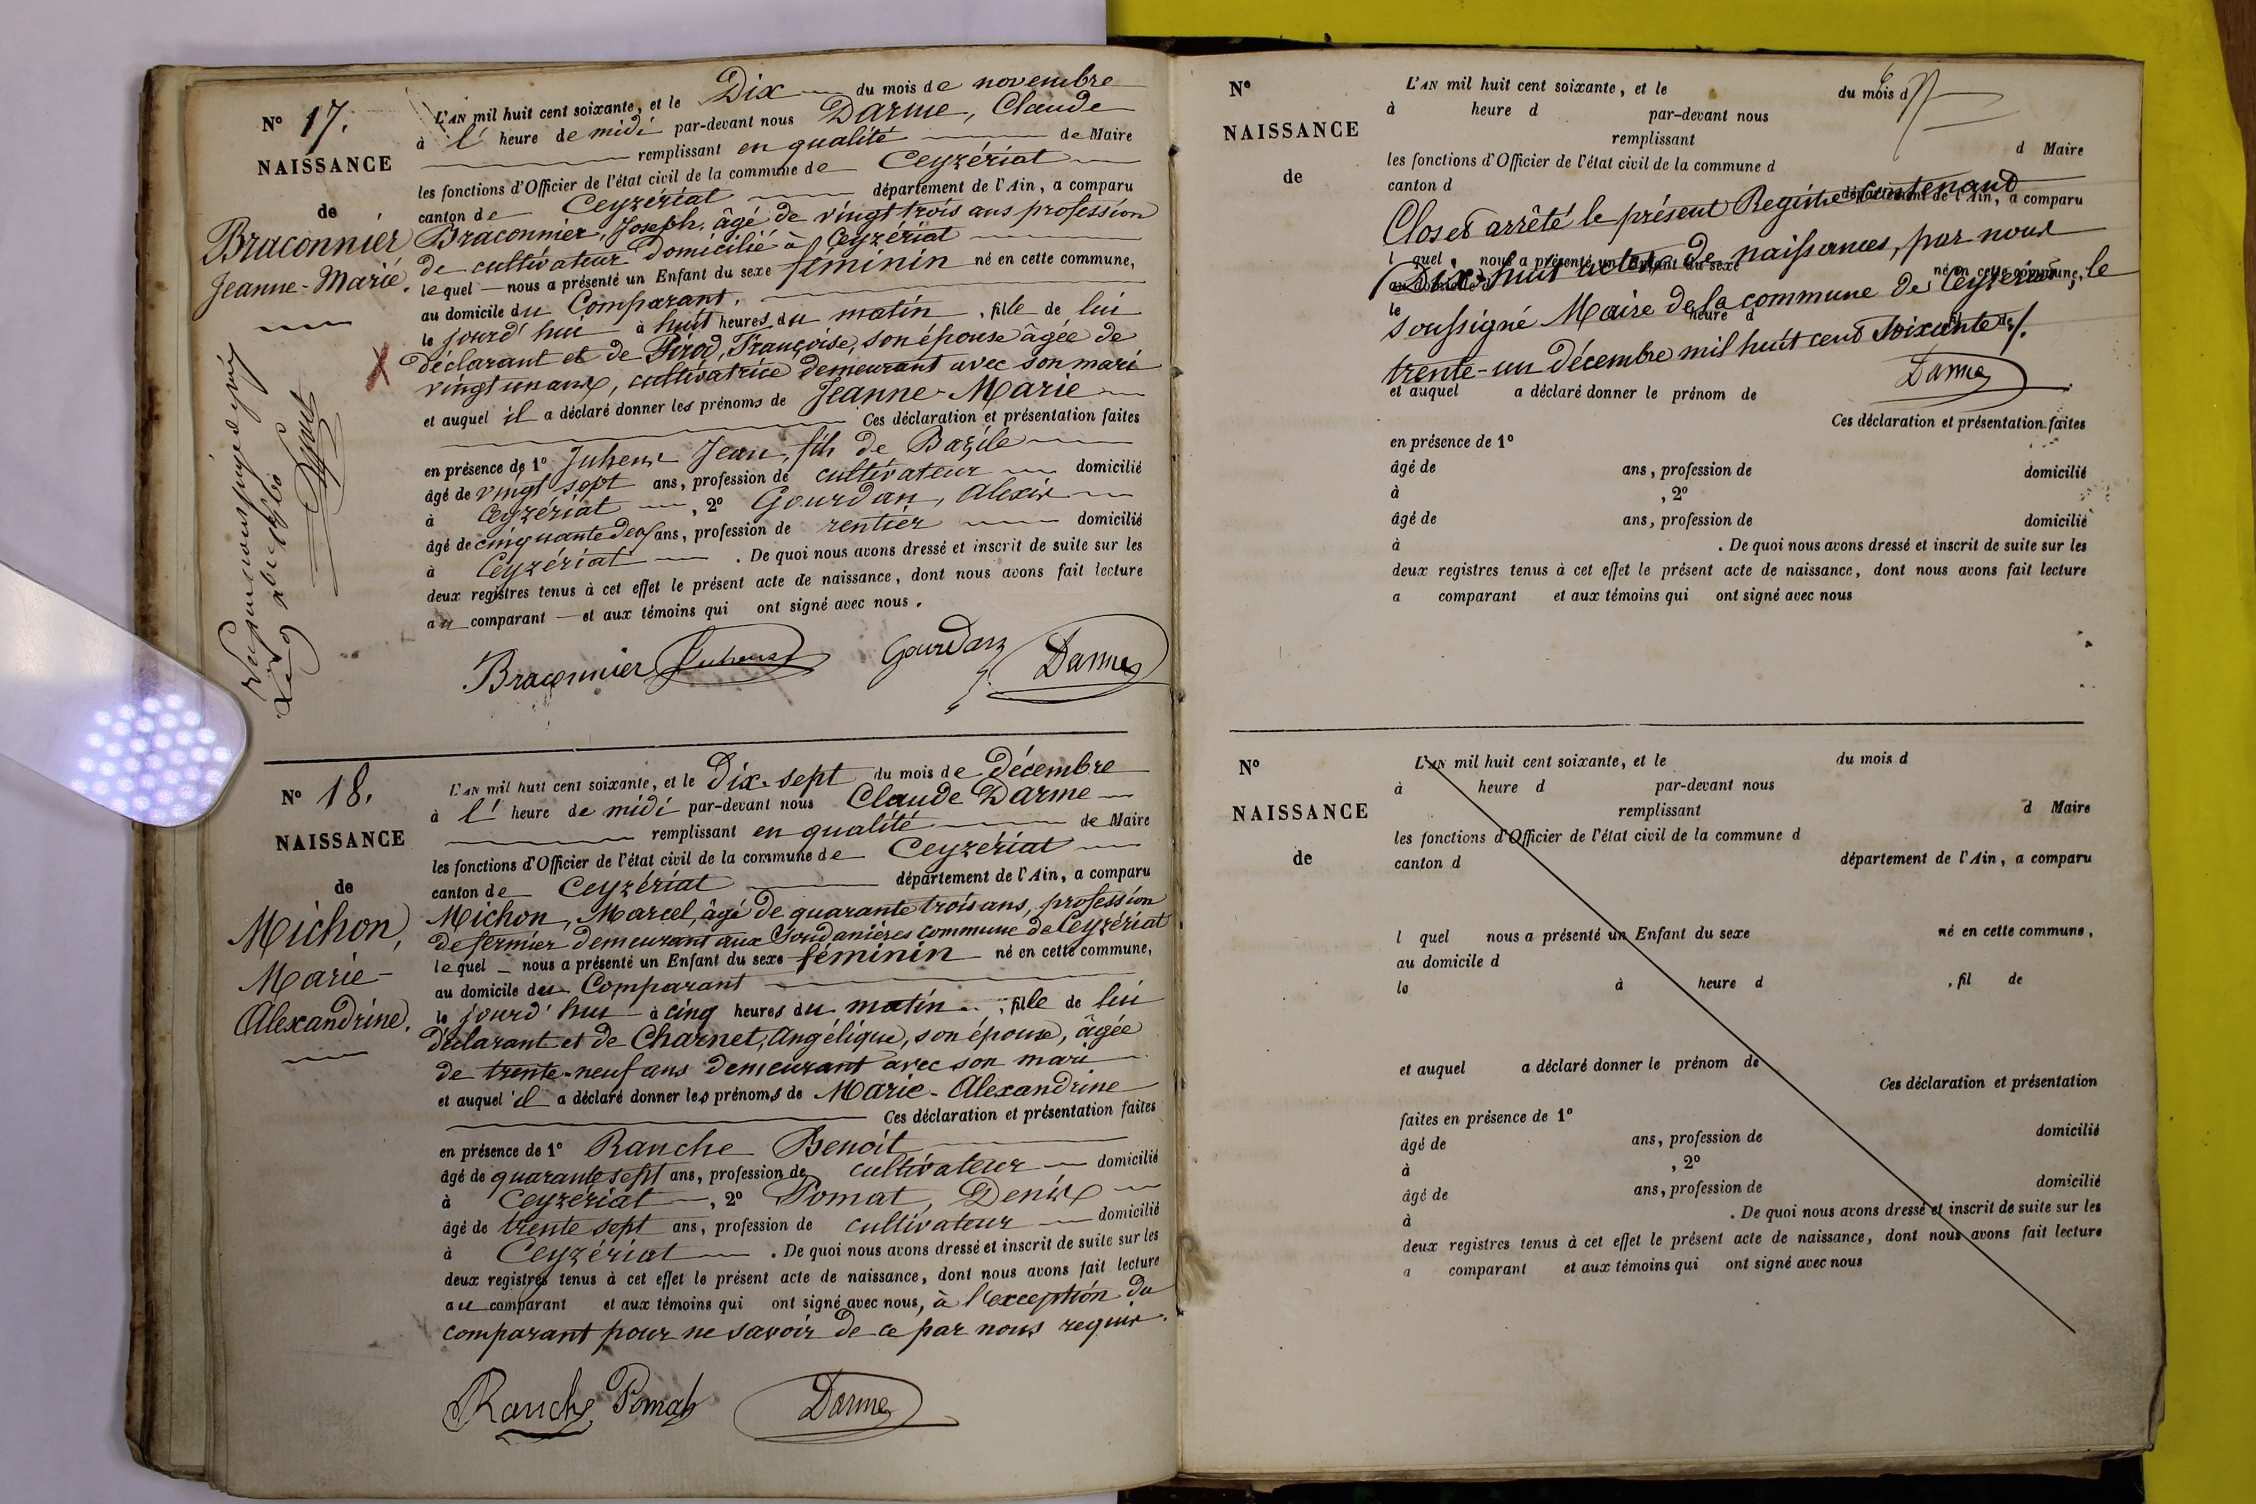 N° 17.
NAISSANCE
de
Braconnier
Jeanne-Marie.
L'AN mil huit cent soixante, et le Dix du mois de novembre
à l' heure de midi par-devant nous Darme, Claude
remplissant en qualité de Maire
les fonctions d'Officier de l'état civil de la commune de Ceyzériat
canton de Ceyzériat département de l'Ain, a comparu
Braconnier, Joseph, âgé de vingt trois ans profession
de cultivateur domicilié à Ceyzériat
lequel nous a présenté un Enfant du sexe féminin né en cette commune,
au domicile du Comparant.
le jourd'hui à huit heures du matin, fille de lui
déclarant et de Firod, Françoise, son épouse âgée de
vingt un ans, cultivatrice demeurant avec son mari
et auquel il a déclaré donner les prénoms de Jeanne-Marie
Ces déclaration et présentation faites
en présence de 1° Jean, fils de Bazile
âgé de vingt sept ans, profession de cultivateur domicilié
à Ceyzériat, 2° Gourdan, Alexis
âgé de cinquante deux ans, profession de rentier domicilié
à Ceyzériat. De quoi nous avons dressé et inscrit de suite sur les
deux registres tenus à cet effet le présent acte de naissance, dont nous avons fait lecture
au comparant et aux témoins qui ont signé avec nous.
Braconnier Gourdan Darme
N° 18.
NAISSANCE
de
Michon,
Marie-
Alexandrine.
L'AN mil huit cent soixante, et le Dix-sept du mois de décembre
à l' heure de midi par-devant nous Claude Darme
remplissant en qualité de Maire
les fonctions d'Officier de l'état civil de la commune de Ceyzériat
canton de Ceyzériat département de l'Ain, a comparu
Michon, Marcel, âgé de quarante trois ans, profession
de fermier demeurant aux Soudanières commune de Ceyzériat
lequel nous a présenté un Enfant du sexe féminin né en cette commune,
au domicile du Comparant
le jourd'hui à cinq heures du matin, fille de lui
déclarant et de Charnet, Angélique, son épouse, âgée
de trente-neuf ans demeurant avec son mari
et auquel il a déclaré donner les prénoms de Marie-Alexandrine
Ces déclaration et présentation faites
en présence de 1° Ranche Benoit
âgé de quarante sept ans, profession de cultivateur domicilié
à Ceyzériat, 2° Pomat, Denis
âgé de trente sept ans, profession de cultivateur domicilié
à Ceyzériat. De quoi nous avons dressé et inscrit de suite sur les
deux registres tenus à cet effet le présent acte de naissance, dont nous avons fait lecture
au comparant et aux témoins qui ont signé avec nous, à l'exception du
comparant pour ne savoir de ce par nous requis.
Ranche Pomat Darme
N°
NAISSANCE
de
L'AN mil huit cent soixante, et le du mois d
à heure d par-devant nous
remplissant
d Maire
les fonctions d'Officier de l'état civil de la commune d
canton d
département de l'Ain, a comparu
Clos et arrêté le présent Registre contenant
l quel nous a présenté un Enfant du sexe né en cette commune,
Dix-huit actes de naissances, par nous
au domicile d
le heure d fil de
soussigné Maire de la commune de Ceyzériat, le
trente-un décembre mil huit cent soixante
Darme
et auquel a déclaré donner le prénom de
Ces déclaration et présentation faites
en présence de 1°
âgé de ans, profession de domicilié
à , 2°
âgé de ans, profession de domicilié
à . De quoi nous avons dressé et inscrit de suite sur les
deux registres tenus à cet effet le présent acte de naissance, dont nous avons fait lecture
a comparant et aux témoins qui ont signé avec nous
N°
NAISSANCE
de
L'AN mil huit cent soixante, et le du mois d
à heure d par-devant nous
remplissant d Maire
les fonctions d'Officier de l'état civil de la commune d
canton d département de l'Ain, a comparu
l quel nous a présenté un Enfant du sexe né en cette commune,
au domicile d
le à heure d , fil de
et auquel a déclaré donner le prénom de
Ces déclaration et présentation
faites en présence de 1°
âgé de ans, profession de domicilié
à , 2°
âgé de ans, profession de domicilié
à . De quoi nous avons dressé et inscrit de suite sur les
deux registres tenus à cet effet le présent acte de naissance, dont nous avons fait lecture
a comparant et aux témoins qui ont signé avec nous